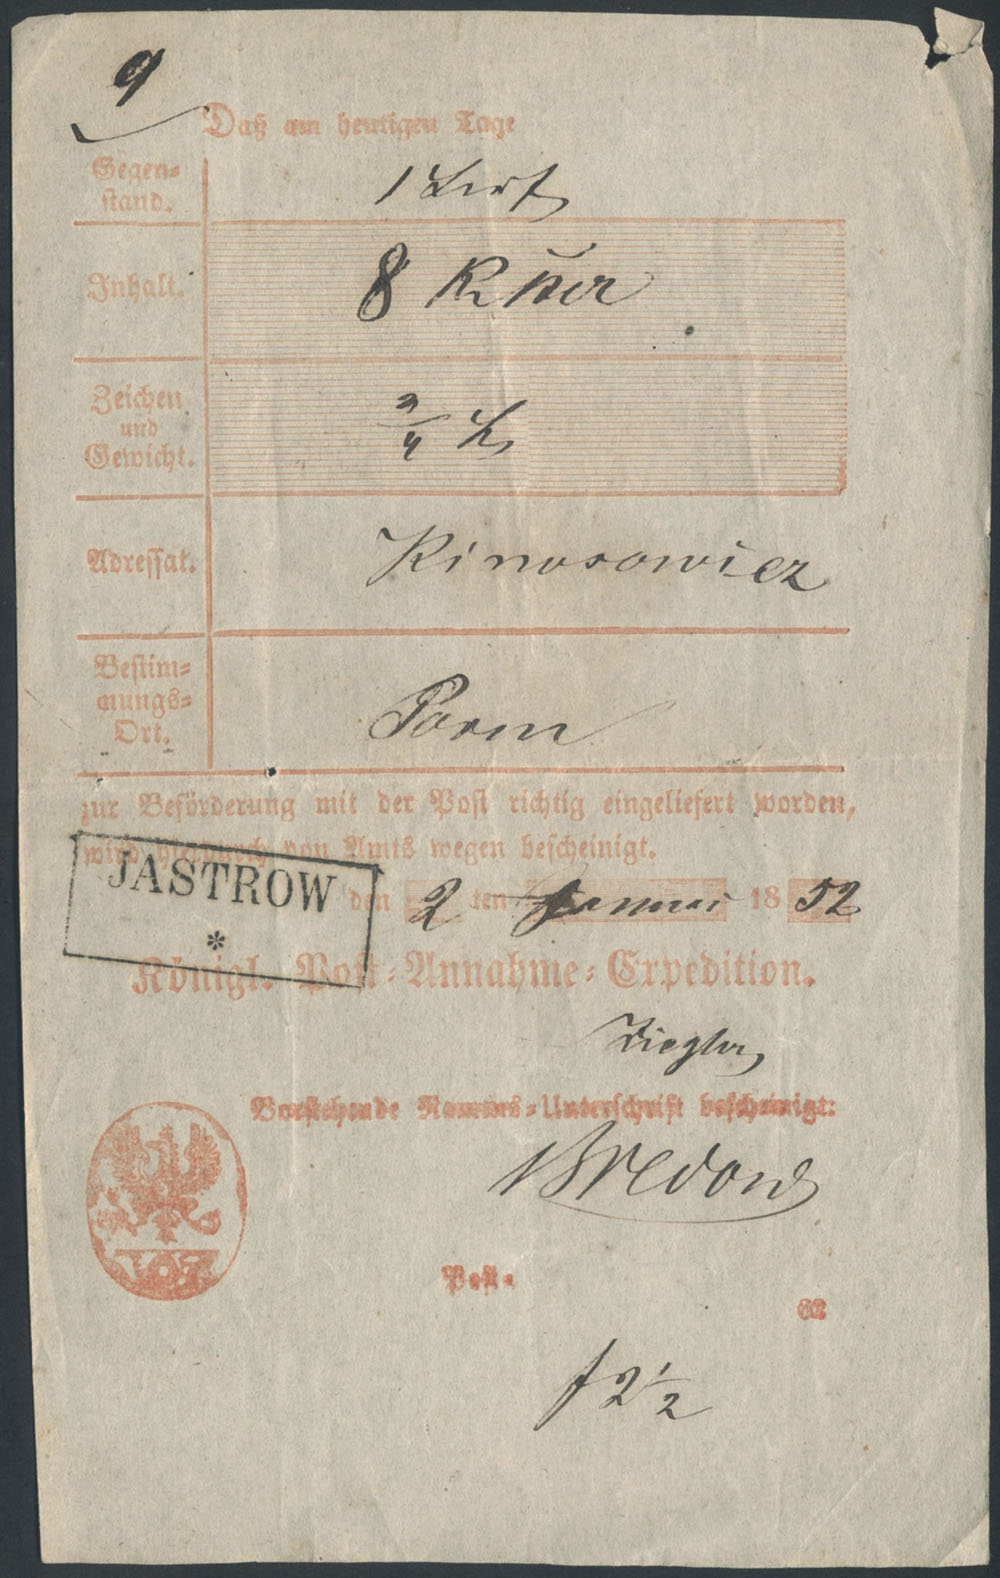 9
Daß am heutigen Tage
Gegen-
stand.
1
Inhalt.
8
Zeichen
und
Gewicht.
3/4
Adressat.
Bestim-
mungs-
Ort.
zur Beförderung mit der Post richtig eingeliefert worden,
wird hierdurch von Amts wegen bescheinigt.
JASTROW
*
den 2 ten Januar 18 52
Königl. Post-Annahme-Expedition.
Ziegler
Vorstehende Namens-Unterschrift bescheinigt:
Bredow
Post-
f 2 1/2